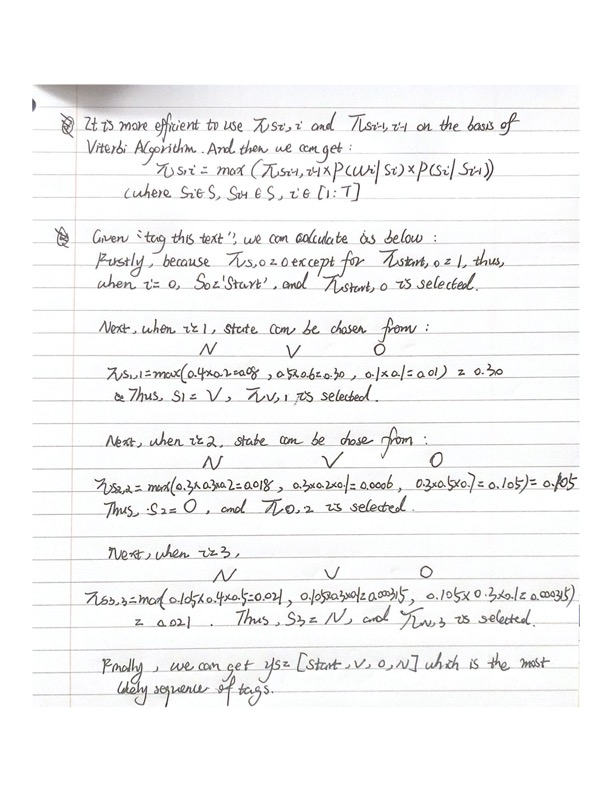 It is more efficient to use πsi,i and πsi-1,i-1 on the basis of
Viterbi Algorithm. And then we can get :
πsi,i = max (πsi-1,i-1 × P(wi|si) × P(si|si-1))
(where Si∈S, Si-1∈S, i∈[1:T]
Given "tag this text", we can calculate as below :
Firstly, because πs,0=0 except for πstart,0=1, thus,
when i=0, S0='Start', and πstart,0 is selected.
Next, when i=1, state can be chosen from :
N V O
πs1,1=max(0.4×0.2=0.08 , 0.5×0.6=0.30 , 0.1×0.1=0.01) = 0.30
Thus, S1 = V, πv,1 is selected.
Next, when i=2, state can be chose from :
N V O
πs2,2=max(0.3×0.3×0.2=0.018 , 0.3×0.2×0.1=0.0006 , 0.3×0.5×0.7=0.105)= 0.105
Thus, S2= O, and πo,2 is selected.
Next, when i=3,
N V O
πs3,3=max(0.105×0.4×0.5=0.021 , 0.105×0.3×0.1=0.000315, 0.105×0.3×0.1=0.000315)
= 0.021 . Thus, S3= N, and πN,3 is selected.
Finally, we can get ys= [start, V, O, N] which is the most
likely sequence of tags.